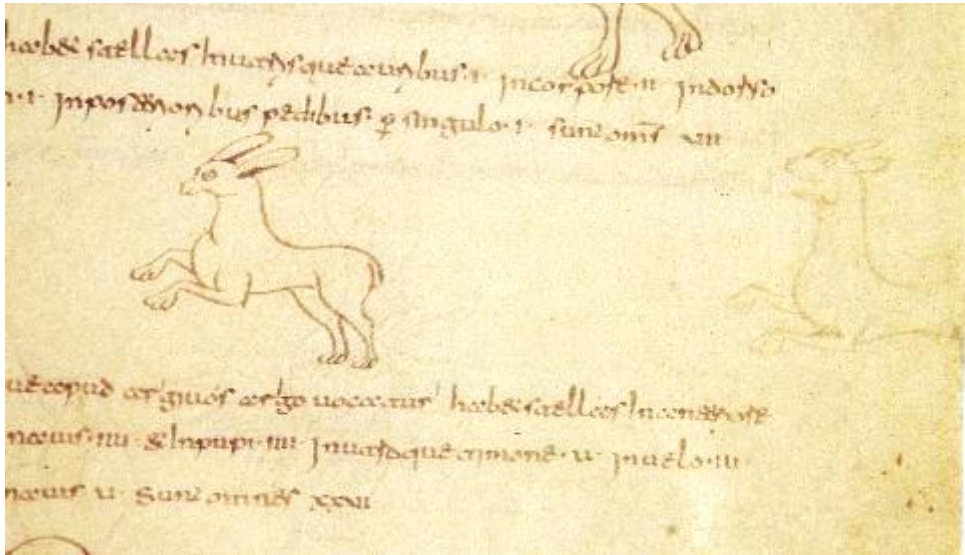 habet stellas Inutrisque auribus · i · Incorpore · ii · Indorso
· i · Inposterioribus pedibus p singulo · i · sunt oms
apud argiuos argo uocatus habet stellas
nauis · iiii · & Inpupi · iiii · Inutroque timone · v · Inuelo · iii ·
nauis v · Sunt omnes xxvi